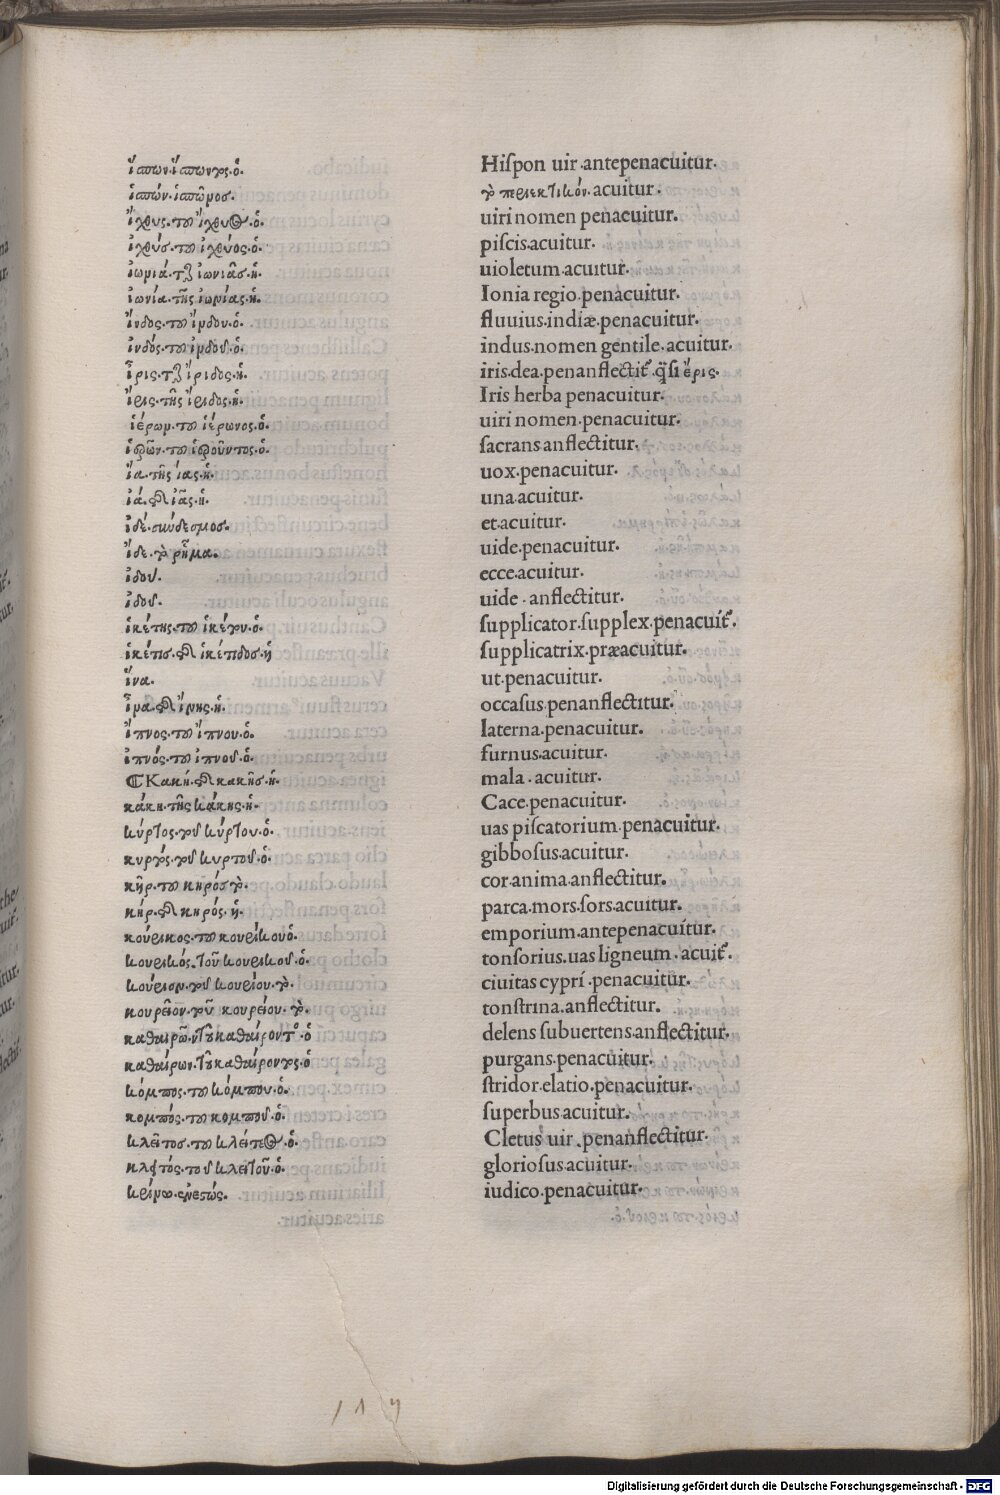 ἵππων.ἵππωνος.ὁ. Hiſpon uir.antepenacuitur.
ἱππών.ἱππῶμος. περιεκτικόν.acuitur.
ἴχθυς.του ἴχθυος.ὁ. uiri nomen penacuitur.
ἰχθύς.του ἰχθύος.ὁ. piſcis.acuitur.
ἰωνιά.τῆς ἰωνιᾶς.ἡ. uioletum.acuitur.
ἰωνία.τῆς ἰωνίας.ἡ. Ionia regio.penacuitur.
ἴνδος.του ἴνδου.ὁ. fluuius.indiæ.penacuitur.
ἰνδός.του ἰνδοῦ.ὁ. indus.nomen gentile.acuitur.
ἶρις.τῆς ἴριδος.ἡ. iris.dea.penanflectit᷑.q̃ſi ἔρις.
ἴρις.τῆς ἴριδος.ἡ. Iris herba penacuitur.
ἱέρων.του ἱέρωνος.ὁ. uiri nomen.penacuitur.
ἱερῶν.του ἱεροῦντος.ὁ. ſacrans anflectitur.
ἴα.τῆς ἴας.ἡ. uox.penacuitur.
ἰά.τῆς ἰᾶς.ἡ. una.acuitur.
ἰδέ.σύνδεσμος. et.acuitur.
ἴδε.τὸ ρῆμα. uide.penacuitur.
ἰδού. ecce.acuitur.
ἰδοῦ. uide.anflectitur.
ἱκέτης.του ἱκέτου.ὁ. ſupplicator.ſupplex.penacuit᷑.
ἱκέτις.τῆς ἱκέτιδος.ἡ ſupplicatrix.præacuitur.
ἵνα. ut.penacuitur.
occaſus.penanflectitur.
ἴπνος.του ἴπνου.ὁ. laterna.penacuitur.
ἰπνός.του ἰπνοῦ.ὁ. furnus.acuitur.
Κακή.τῆς κακῆς.ἡ. mala.acuitur.
κάκη.τῆς κάκης.ἡ. Cace.penacuitur.
κύρτος.του κύρτου.ὁ. uas piſcatorium.penacuitur.
κυρτός.του κυρτοῦ.ὁ. gibboſus.acuitur.
κῆρ.του κηρός.τὸ. cor.anima.anflectitur.
κήρ.τῆς κηρός.ἡ. parca.mors.ſors.acuitur.
κούρικος.του κουρίκου.ὁ. emporium.antepenacuitur.
κουρικός.τοῦ κουρικοῦ.ὁ. tonſorius.uas ligneum.acuit᷑.
κούριον.του κουρίου.τὸ. ciuitas cypri.penacuitur.
κουρεῖον.τοῦ κουρείου.τὸ. tonſtrina.anflectitur.
καθαιρῶν.τοῦ καθαιροῦντος.ὁ delens ſubuertens.anflectitur.
καθαίρων.τοῦ καθαίροντος.ὁ purgans.penacuitur.
κόμπος.του κόμπου.ὁ. ſtridor.elatio.penacuitur.
κομπός.του κομποῦ.ὁ. ſuperbus acuitur.
κλεῖτος.του κλείτου.ὁ. Cletus uir.penanflectitur.
κλειτός.τοῦ κλειτοῦ.ὁ. glorioſus acuitur.
κρίνω.ἐνεστώς. iudico.penacuitur.
117
Digitalisierung gefördert durch die Deutsche Forschungsgemeinschaft - DFG